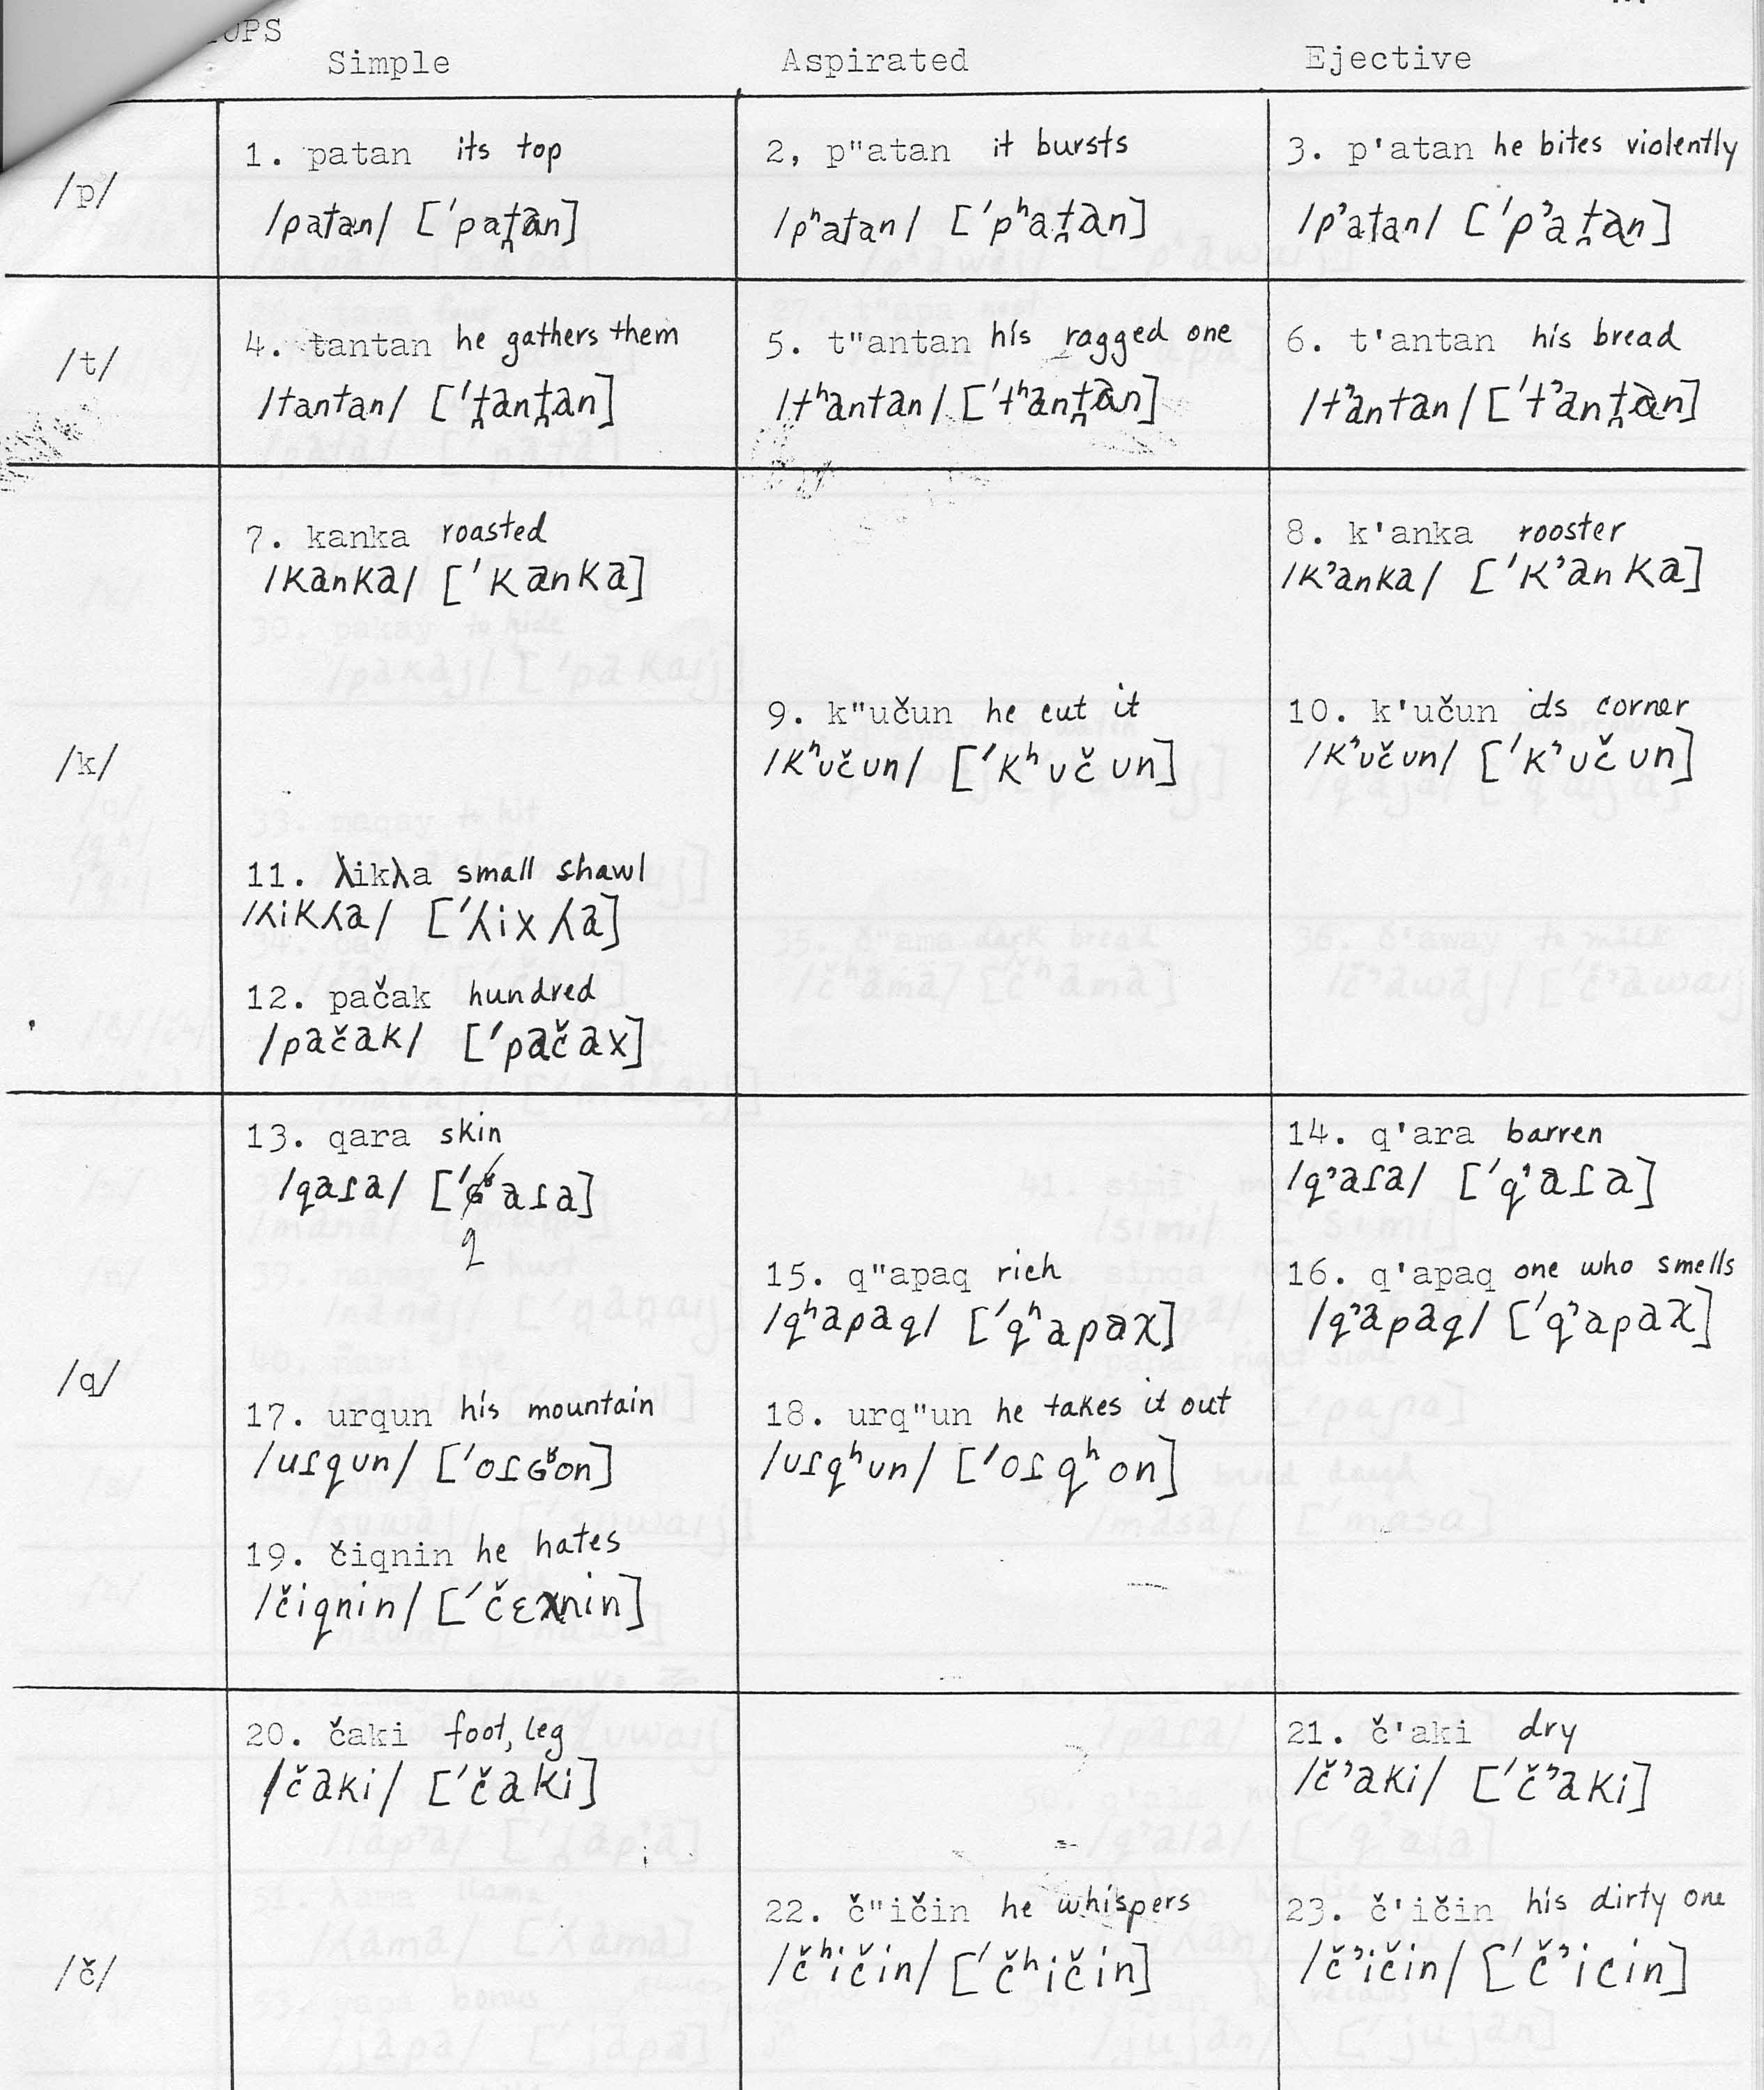 OPS
Simple Aspirated Ejective
/p/
1. patan its top
/patan/ [ˈpat̪an]
2, p"atan it bursts
/pʰatan/ [ˈpʰat̪an]
3. p'atan he bites violently
/pʼatan/ [ˈpʼat̪an]
/t/
4. tantan he gathers them
/tantan/ [ˈt̪ant̪an]
5. t"antan his ragged one
/tʰantan/ [ˈtʰant̪an]
6. t'antan his bread
/tʼantan/ [ˈtʼant̪an]
/k/
7. kanka roasted
/kanka/ [ˈkanka]
8. k'anka rooster
/kʼanka/ [ˈkʼanka]
9. k"učun he cut it
/kʰučun/ [ˈkʰučun]
10. k'učun its corner
/kʼučun/ [ˈkʼučun]
11. λikλa small shawl
/ʎikʎa/ [ˈʎixʎa]
12. pačak hundred
/pačak/ [ˈpačax]
/q/
13. qara skin
/qaɾa/ [ˈɢʶaɾa]
q
14. q'ara barren
/qʼaɾa/ [ˈqʼaɾa]
15. q"apaq rich
/qʰapaq/ [ˈqʰapaχ]
16. q'apaq one who smells
/qʼapaq/ [ˈqʼapaχ]
17. urqun his mountain
/uɾqun/ [ˈoɾɢʶon]
18. urq"un he takes it out
/uɾqʰun/ [ˈoɾqʰon]
19. čiqnin he hates
/čiqnin/ [ˈčɛχnin]
/č/
20. čaki foot, leg
/čaki/ [ˈčaki]
21. č'aki dry
/čʼaki/ [ˈčʼaki]
22. č"ičin he whispers
/čʰičin/ [ˈčʰičin]
23. č'ičin his dirty one
/čʼičin/ [ˈčʼicin]